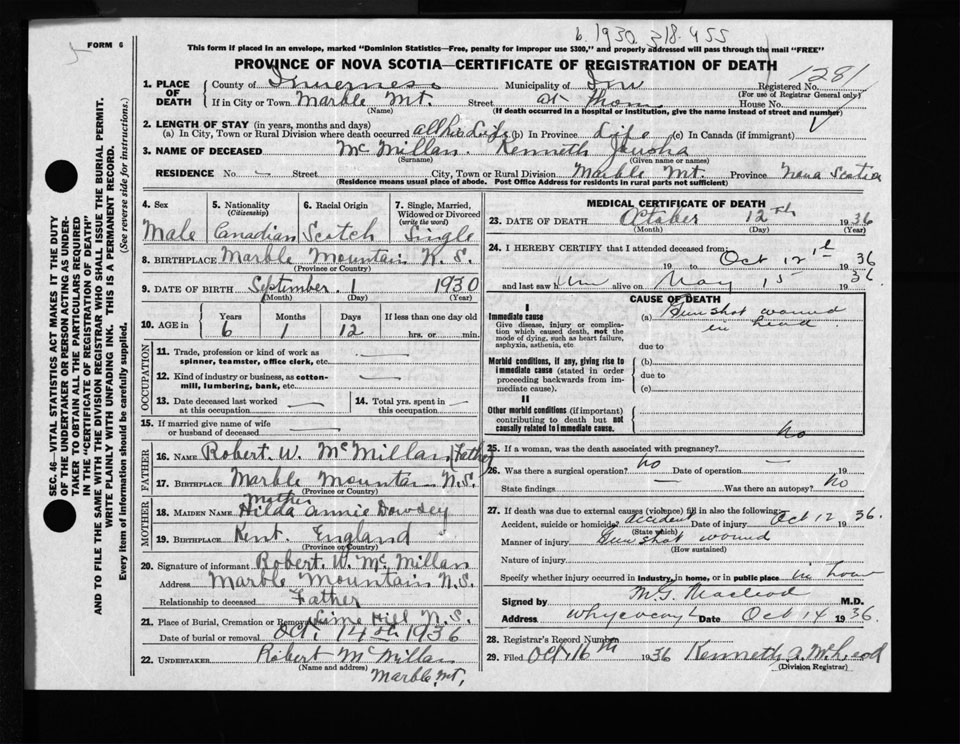 b. 1930. 318-455
FORM 6
This form if placed in an envelope, marked "Dominion Statistics—Free, penalty for improper use $300," and properly addressed will pass through the mail "FREE"
PROVINCE OF NOVA SCOTIA—CERTIFICATE OF REGISTRATION OF DEATH
1281
SEC. 46—VITAL STATISTICS ACT MAKES IT THE DUTY
OF THE UNDERTAKER OR PERSON ACTING AS UNDER-
TAKER TO OBTAIN ALL THE PARTICULARS REQUIRED
IN THE "CERTIFICATE OF REGISTRATION OF DEATH"
AND TO FILE THE SAME WITH THE DIVISION REGISTRAR WHO SHALL ISSUE THE BURIAL PERMIT.
WRITE PLAINLY WITH UNFADING INK. THIS IS A PERMANENT RECORD.
Every item of information should be carefully supplied. (See reverse side for instructions.)
1. PLACE OF DEATH County of Inverness Municipality of Registered No.
(For use of Registrar General only)
If in City or Town Marble Mt. Street at Home House No.
(If death occurred in a hospital or institution, give the name instead of street and number)
2. LENGTH OF STAY (in years, months and days)
(a) In City, Town or Rural Division where death occurred all his Life (b) In Province Life (c) In Canada (if immigrant)
3. NAME OF DECEASED McMillan. Kenneth
(Surname) (Given name or names)
RESIDENCE No. — Street City, Town or Rural Division Marble Mt. Province Nova Scotia
(Residence means usual place of abode. Post Office Address for residents in rural parts not sufficient)
4. Sex 5. Nationality (Citizenship) 6. Racial Origin 7. Single, Married, Widowed or Divorced (write the word)
Male Canadian Scotch Single
8. BIRTHPLACE Marble Mountain N.S.
(Province or Country)
9. DATE OF BIRTH September. 1 1930
(Month) (Day) (Year)
10. AGE in Years Months Days If less than one day old
6 1 12 hrs. or min.
OCCUPATION
11. Trade, profession or kind of work as spinner, teamster, office clerk, etc. —
12. Kind of industry or business, as cotton-mill, lumbering, bank, etc. —
13. Date deceased last worked at this occupation — 14. Total yrs. spent in this occupation. —
15. If married give name of wife or husband of deceased —
FATHER
16. NAME Robert. W. McMillan (Father)
17. BIRTHPLACE Marble Mountain N.S.
(Province or Country)
MOTHER
Mother
18. MAIDEN NAME Hilda Annie Dowsey
19. BIRTHPLACE Kent. England
(Province or Country)
20. Signature of informant Robert. W. McMillan
Address Marble Mountain N.S.
Relationship to deceased Father
21. Place of Burial, Cremation or Removal Lime Hill N.S.
Date of burial or removal Oct. 14th 1936
22. UNDERTAKER Robert McMillan
(Name and address)
Marble. Mt.
MEDICAL CERTIFICATE OF DEATH
23. DATE OF DEATH October 12th 1936
(Month) (Day) (Year)
24. I HEREBY CERTIFY that I attended deceased from:
19 to Oct 12 1936
and last saw him alive on May 15 1936
CAUSE OF DEATH
I
Immediate cause (a) Gun shot wound
Give disease, injury or complication which caused death, not the mode of dying, such as heart failure, asphyxia, asthenia, etc
in head
due to
Morbid conditions, if any, giving rise to immediate cause (stated in order proceeding backwards from immediate cause).
(b)
due to
(c)
II
Other morbid conditions (if important) contributing to death but not causally related to immediate cause.
25. If a woman, was the death associated with pregnancy? no
26. Was there a surgical operation? no Date of operation — 19
State findings — Was there an autopsy? no
27. If death was due to external causes (violence) fill in also the following:
Accident, suicide or homicide? accident Date of injury Oct 12 1936.
(State which)
Manner of injury Gun shot wound
(How sustained)
Nature of injury
Specify whether injury occurred in industry, in home, or in public place in home
Signed by M.G. Macleod M.D.
Address Whycocoy Date Oct 14 1936
28. Registrar's Record Number
29. Filed Oct. 16th 1936 Kenneth A. McLeod
(Division Registrar)